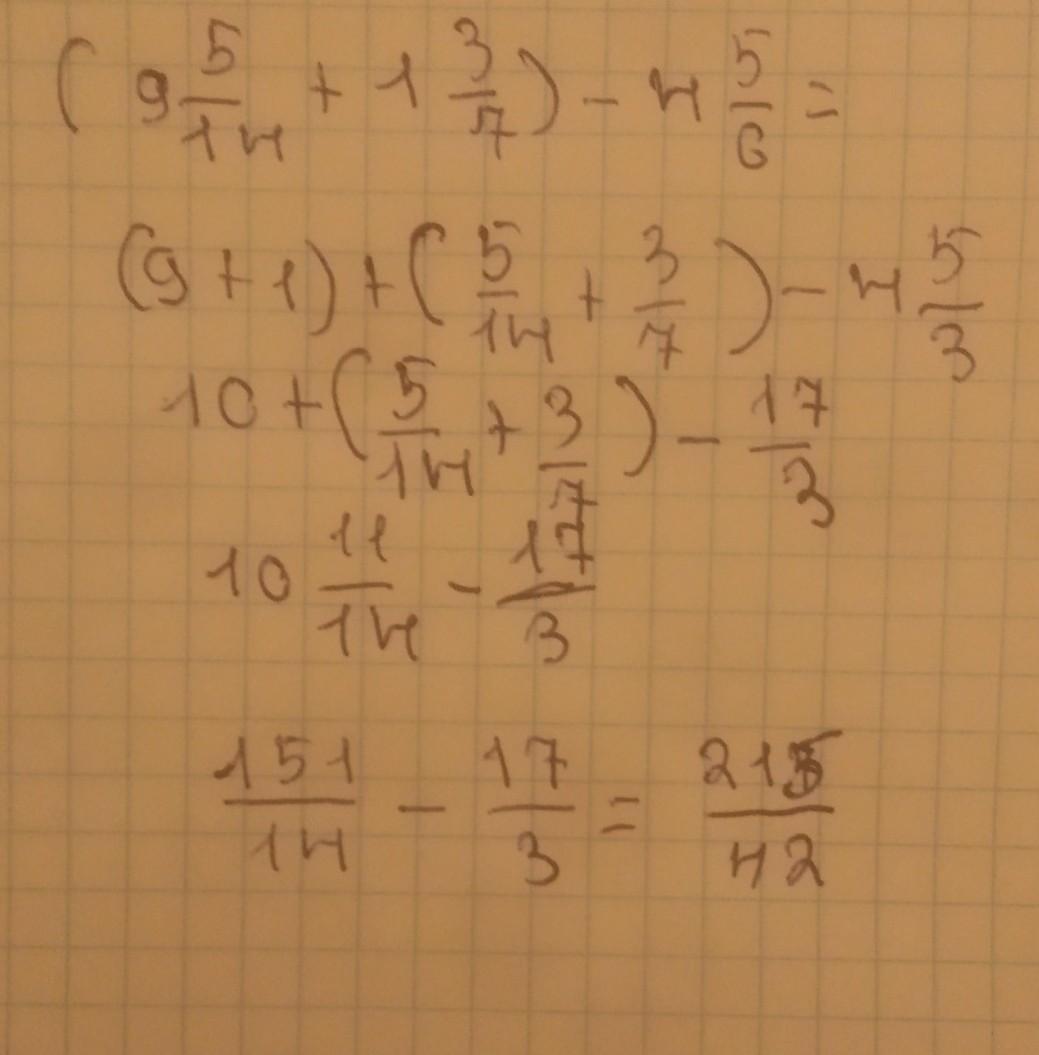 (9 5/14 + 1 3/7) - 4 5/6 =
(9 + 1) + (5/14 + 3/7) - 4 5/3
10 + (5/14 + 3/7) - 17/3
10 11/14 - 17/3
151/14 - 17/3 = 215/42